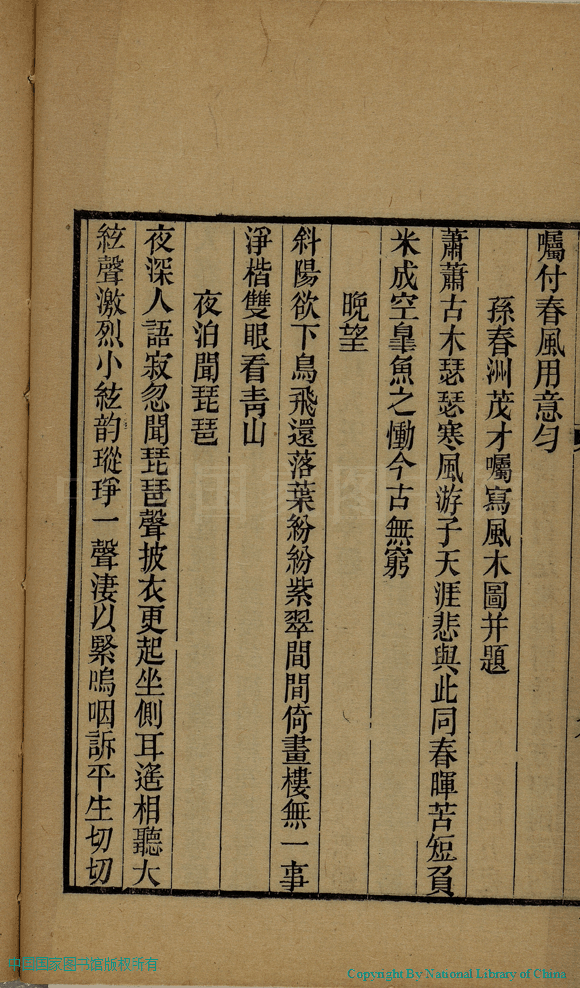 囑付春風用意勻
孫春洲茂才囑寫風木圖并題
蕭蕭古木瑟瑟寒風游子天涯悲與此同春暉苦短負
米成空臯魚之慟今古無窮
晩望
斜陽欲下鳥飛還落葉紛紛紫翠間間倚畫樓無一事
淨楷雙眼看靑山
夜泊聞琵琶
夜深人語寂忽聞琵琶聲披衣更起坐側耳遙相聽大
絃聲激烈小絃韵瑽琤一聲淒以緊嗚咽訴平生切切
中国国家图书馆版权所有
Copyright By National Library of China